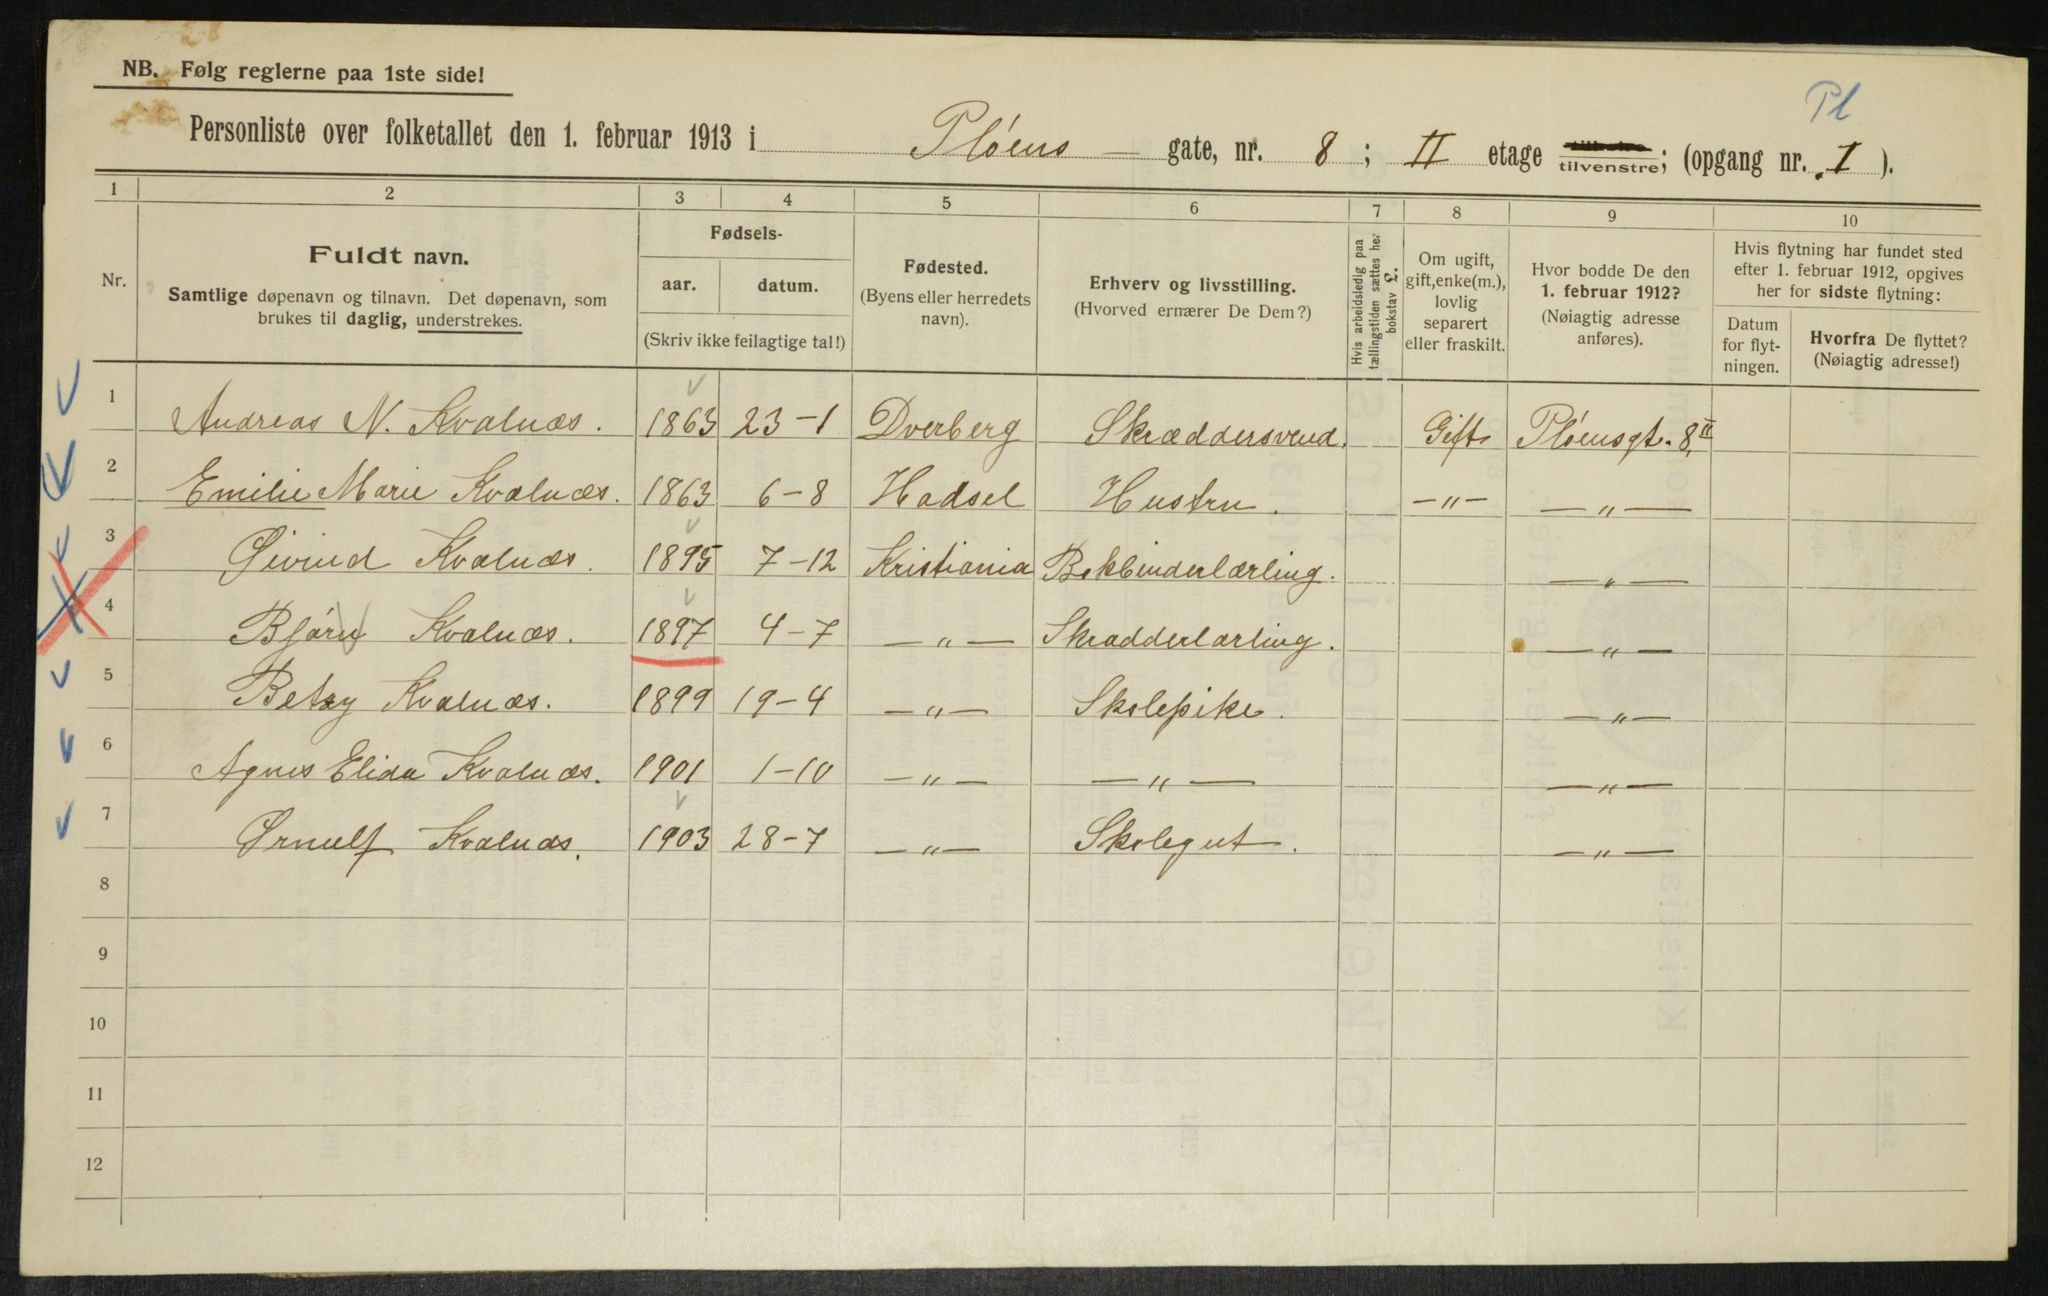 Pl
NB. Følg reglerne paa 1ste side!
Personliste over folketallet den 1. februar 1913 i Plóens — gate, nr. 8 ; II etage tilvenstre; (opgang nr. I ).
1 2 3 4 5 6 7 8 9 10
Nr.
Fuldt navn.
Samtlige døpenavn og tilnavn. Det døpenavn, som
brukes til daglig, understrekes.
Fødsels-
aar. datum.
(Skriv ikke feilagtige tal!)
Fødested.
(Byens eller herredets
navn).
Erhverv og livsstilling.
(Hvorved ernærer De Dem?)
Hvis arbeidsledig paa
tællingstiden sættes her
bokstav £.
Om ugift,
gift, enke(m.),
lovlig
separert
eller fraskilt.
Hvor bodde De den
1. februar 1912?
(Nøiagtig adresse
anføres).
Hvis flytning har fundet sted
efter 1. februar 1912, opgives
her for sidste flytning:
Datum
for flyt-
ningen.
Hvorfra De flyttet?
(Nøiagtig adresse!)
1 Andreas N. Kvalnæs. 1863 23-1 Dverberg Skræddersvend. Gift Plóensgt. 8 II
2 Emilie Marie Kvalnæs. 1863 6-8 Hadsel Hustru. —"— —"—
3 Øivind Kvalnæs. 1895 7-12 Kristiania Bokbinderlærling. —"—
4 Bjórn Kvalnæs. 1897 4-7 —"— Skradderlarling. —"—
5 Betzy Kvalnæs. 1899 19-4 —"— Skolepike. —"—
6 Agnes Elida Kvalnæs. 1901 1-10 —"— —"— —"—
7 Ørnulf Kvalnæs. 1903 28-7 —"— Skolegut. —"—
8
9
10
11
12